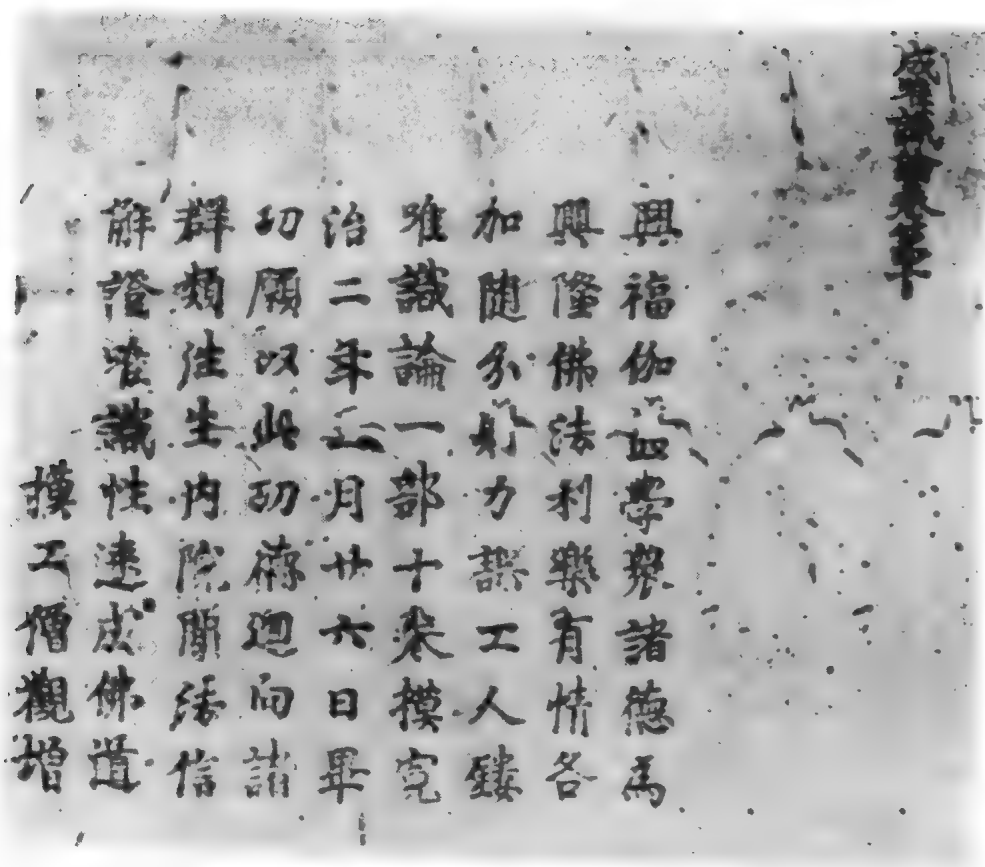 成唯識論卷第十
興福伽藍學衆諸德爲
興隆佛法利樂有情各
加隨分財力課工人鏤
唯識論一部十卷摸寛
治二年三月廿六日畢
功願以此功德迴向諸
群類往生内院聞法信
解證唯識性速成佛道
摸工僧觀增